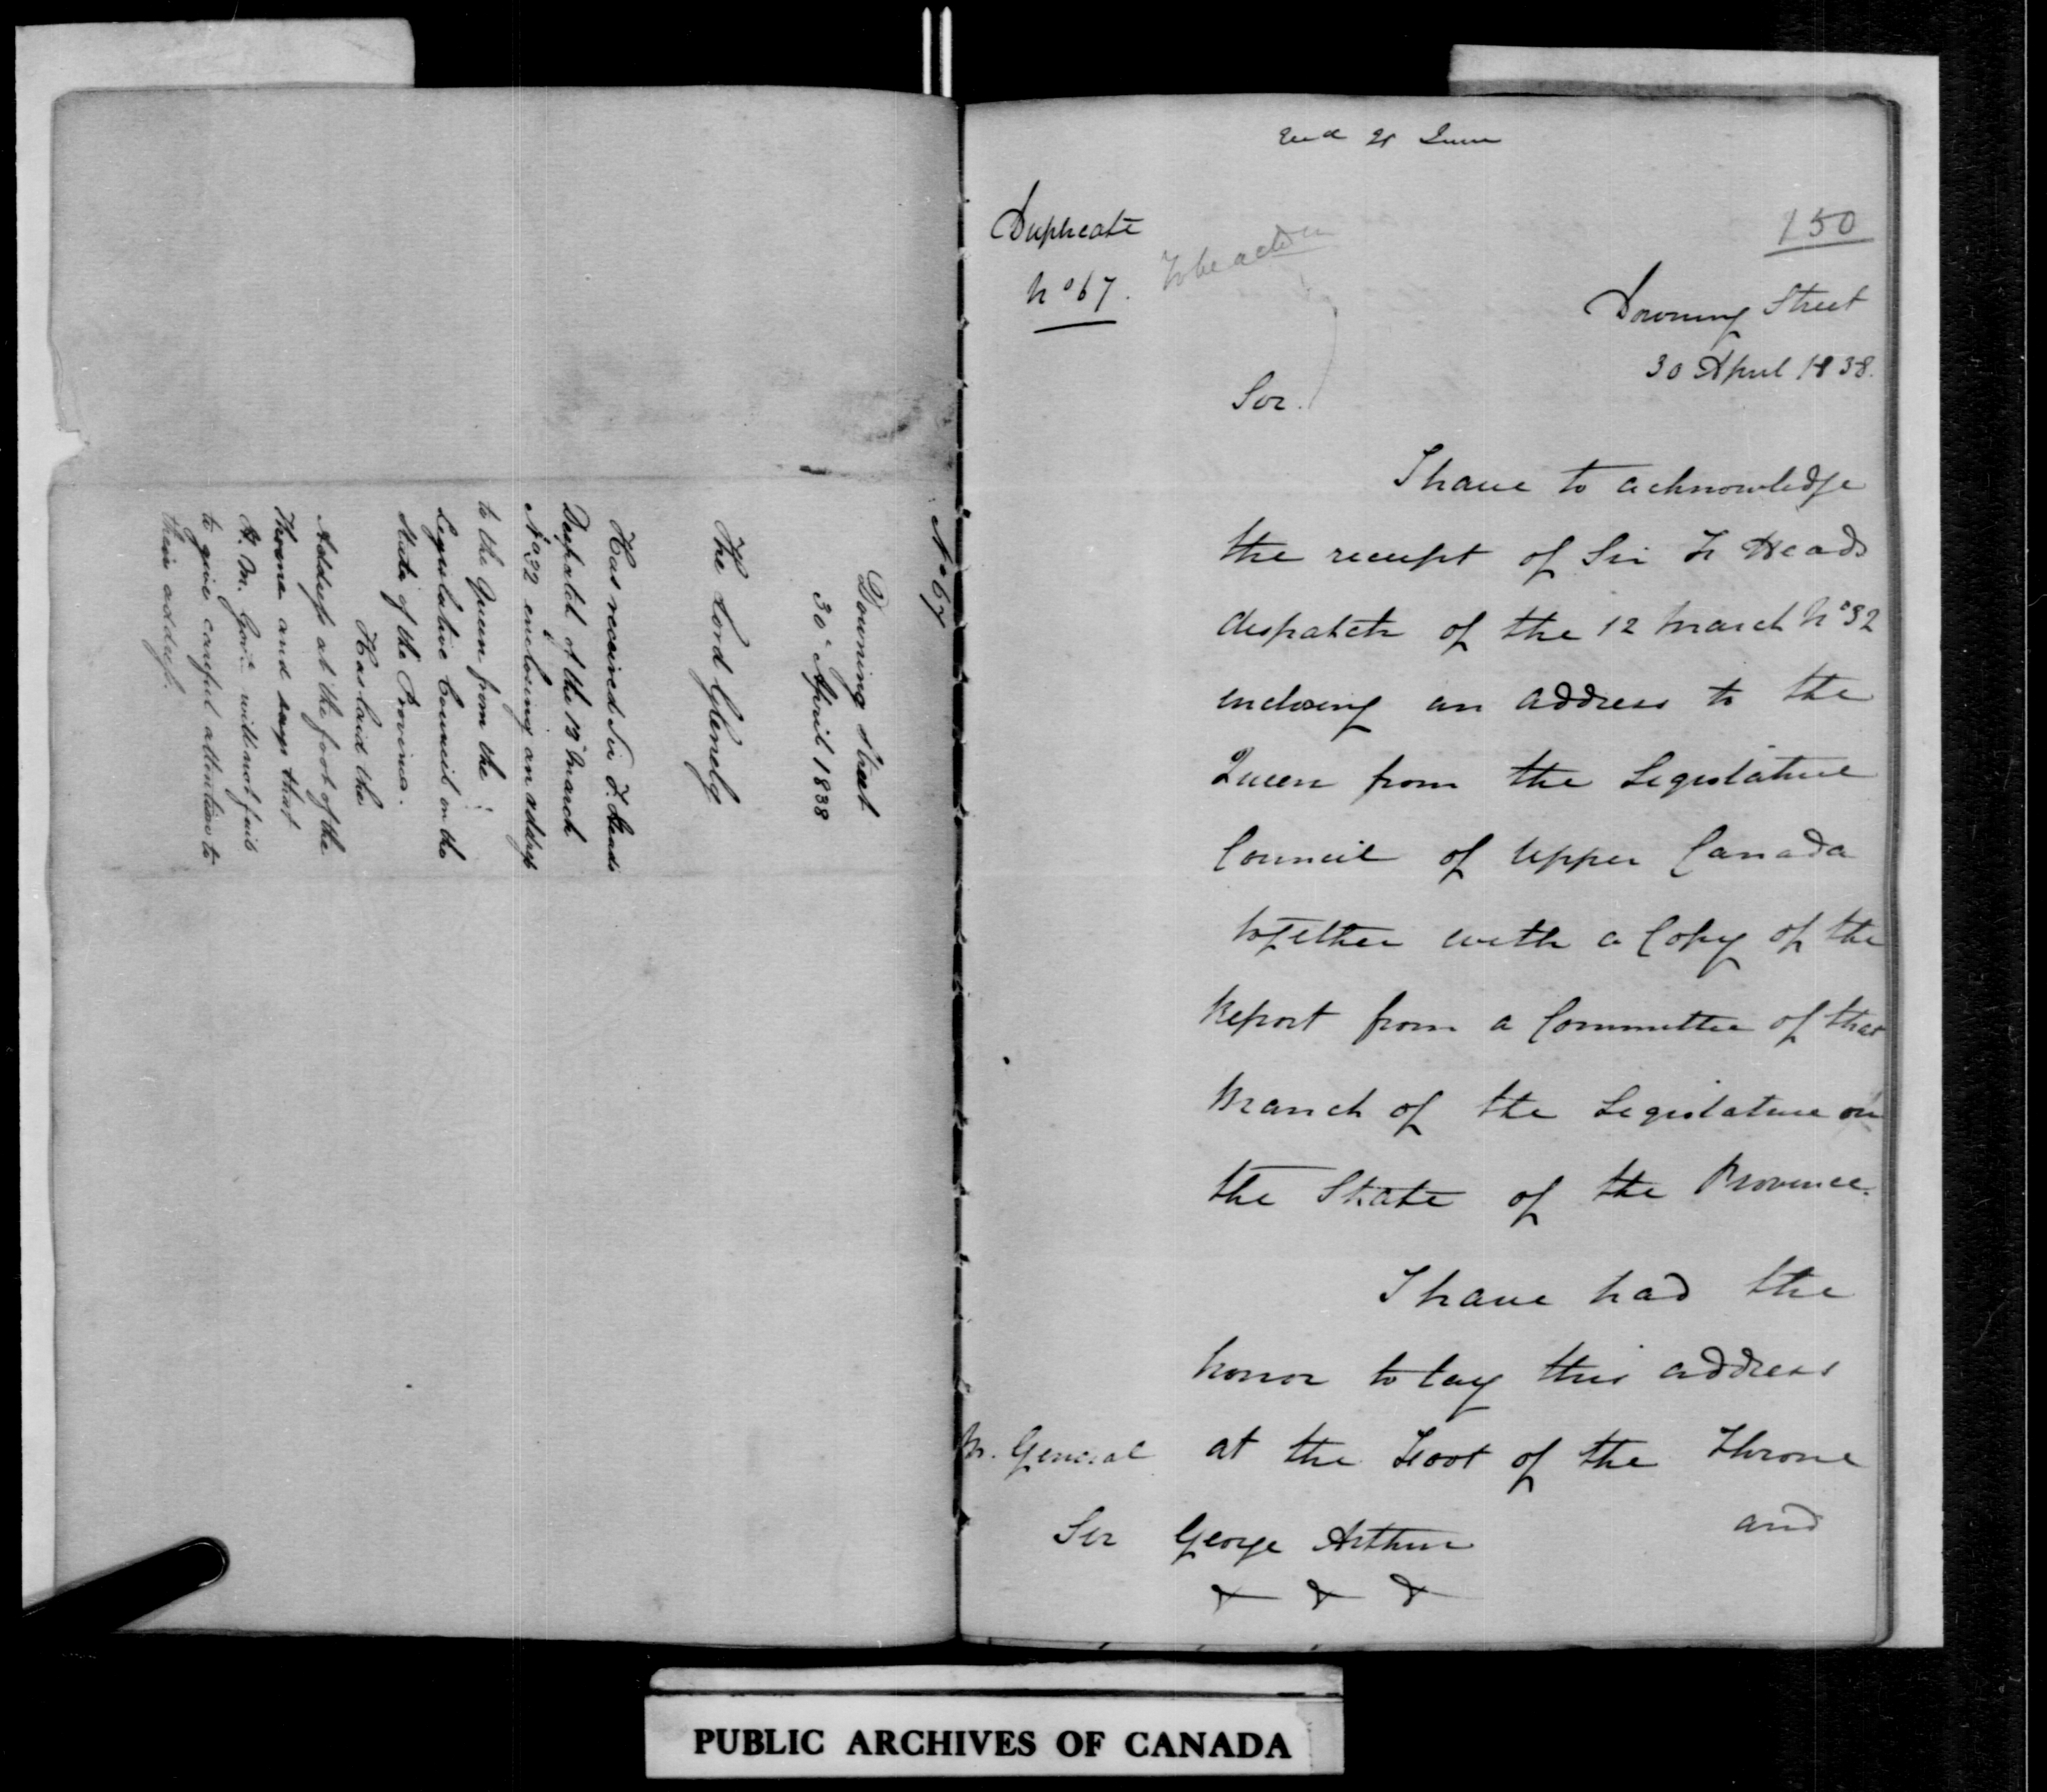 No 67
Downing Street
30th April 1838
The Lord Glenelg
Has received Sir F. Heads
Despatch of the 12th March
No 32 enclosing an address
to the Queen from the
Legislative Council on the
State of the Province.
Has laid the
Address at the foot of the
Throne and says that
H. M. Govt. will not fail
to give careful attention to
their address.
Recd 21 June
Duplicate
No 67.
To be acted on
150
Downing Street
30 April 1838.
Sir.
I have to acknowledge
the receipt of Sir F. Heads
despatch of the 12 March No 32
enclosing an address to the
Queen from the Legislative
Council of Upper Canada
together with a Copy of the
Report from a Committee of that
Branch of the Legislature on
the State of the Province.
I have had the
honor to lay this address
at the Foot of the Throne
and
M. General
Sir George Arthur
& & &
PUBLIC ARCHIVES OF CANADA